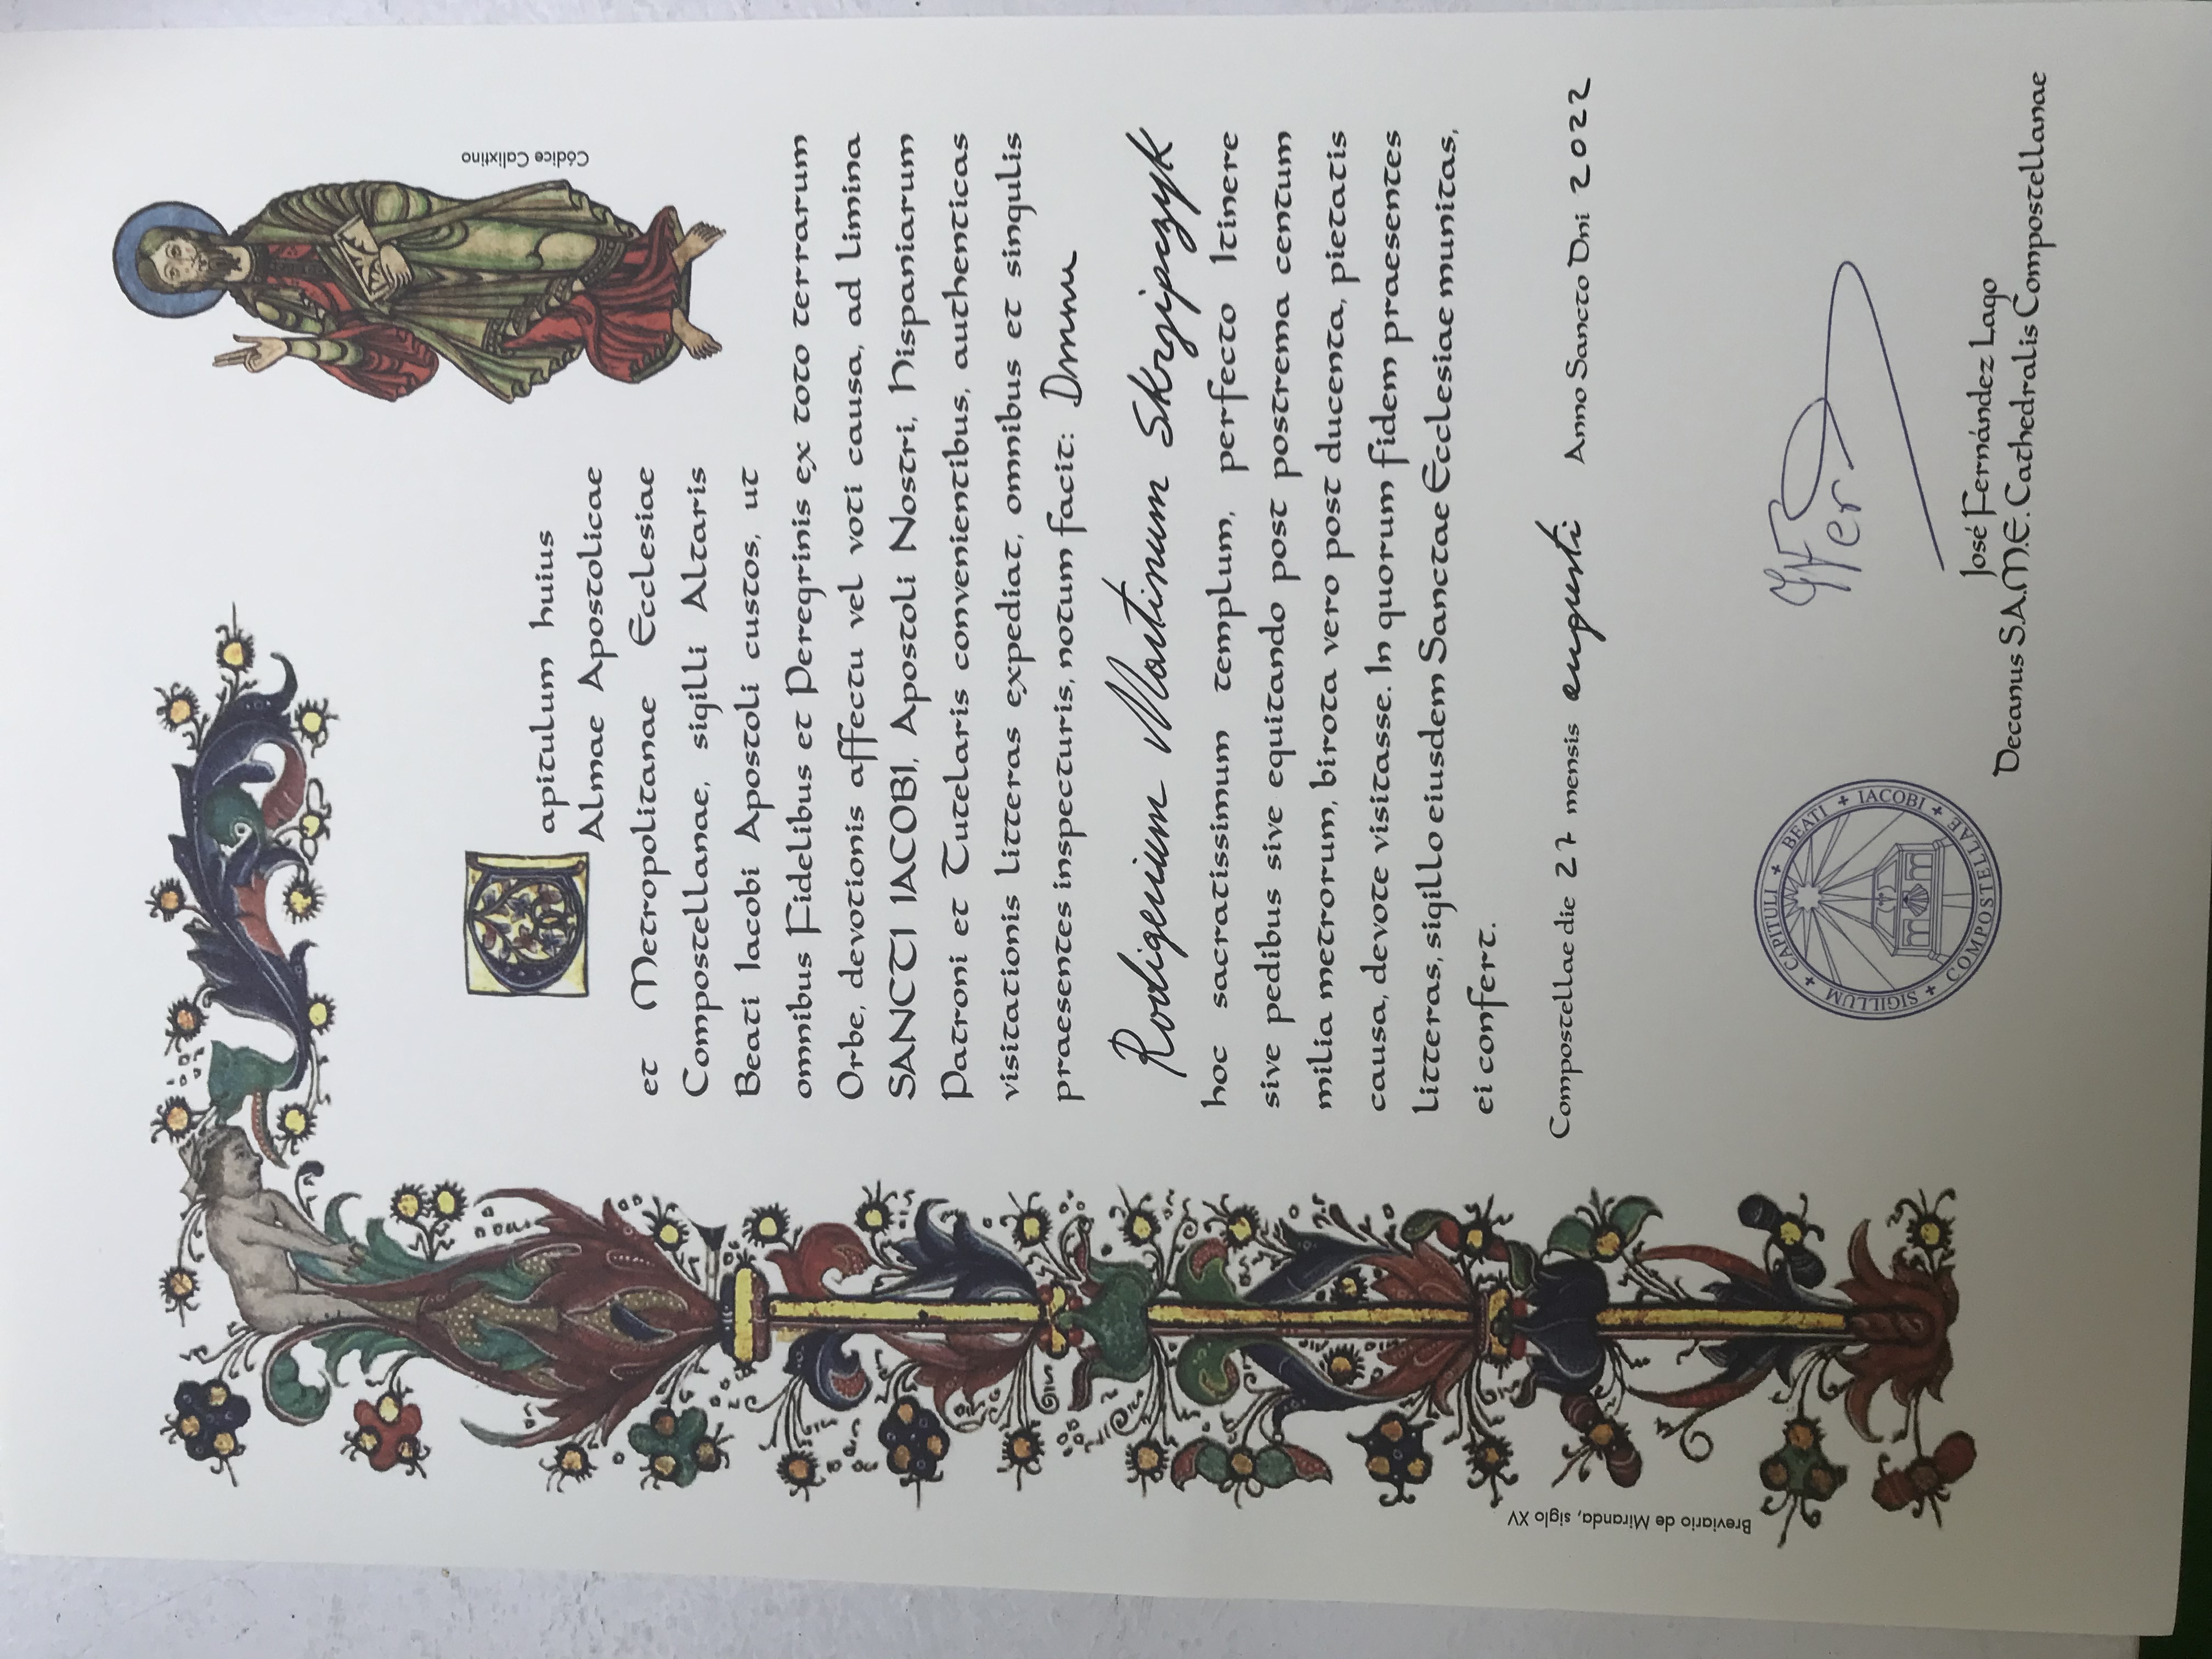 Códice Calixtino
Capitulum huius
Almae Apostolicae
et Metropolitanae Ecclesiae
Compostellanae, sigilli Altaris
Beati Iacobi Apostoli custos, ut
omnibus Fidelibus et Peregrinis ex toto terrarum
Orbe, devotionis affectu vel voti causa, ad limina
SANCTI IACOBI, Apostoli Nostri, Hispaniarum
Patroni et Tutelaris convenientibus, authenticas
visitationis litteras expediat, omnibus et singulis
praesentes inspecturis, notum facit: Dmnu
Rodigenium Martinum Skrzipczyk
hoc sacratissimum templum, perfecto Itinere
sive pedibus sive equitando post postrema centum
milia metrorum, birota vero post ducenta, pietatis
causa, devote visitasse. In quorum fidem praesentes
litteras, sigillo eiusdem Sanctae Ecclesiae munitas,
ei confert.
Compostellae die 27 mensis augusti Anno Sancto Dni 2022
SIGILLUM + CAPITULI + BEATI + IACOBI + COMPOSTELLAE +
José Fernández Lago
Decanus S.A.M.E. Cathedralis Compostellanae
Breviario de Miranda, siglo XV